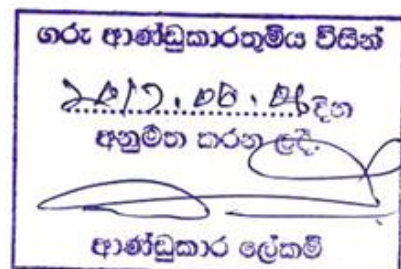 ගරු ආණ්ඩුකාරතුමිය විසින්
2017.06. දින
අනුමත කරන ලදී.
ආණ්ඩුකාර ලේකම්